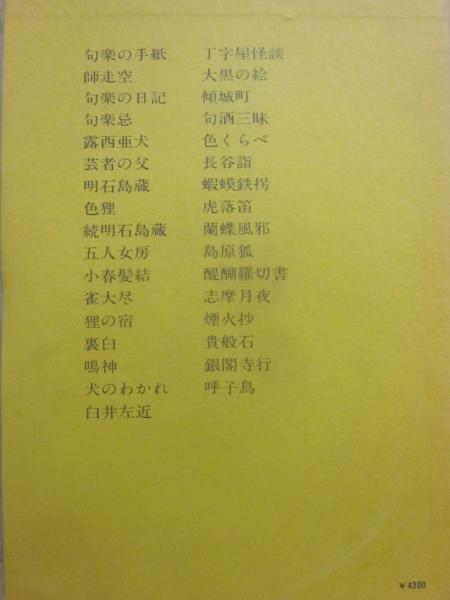 句楽の手紙
師走空
句楽の日記
句楽忌
露西亜犬
芸者の父
明石島蔵
色狸
続明石島蔵
五人女房
小春髪結
雀大尽
狸の宿
裏白
鳴神
犬のわかれ
白井左近
丁字屋怪談
大黒の絵
傾城町
句酒三昧
色くらべ
長谷詣
蝦蟆鉄拐
虎落笛
蘭蝶風邪
島原狐
醍醐羅切書
志摩月夜
煙火抄
貴般石
銀閣寺行
呼子鳥
¥4300